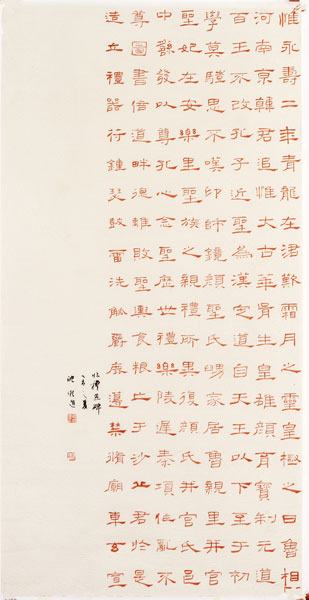 惟永壽二年青龍在涒歎霜月之靈皇極之日魯相
河南京韓君追惟大古華胥生皇雄顏育寶制元道
百王不改孔子近聖為漢定道自天王以下至于初
學莫驥思不嘆卬師鏡顏聖氏舅家居魯親里并官
聖妃在安樂里聖族之親禮所異復顏氏并官氏邑
中繇發以尊孔心念聖歷世禮樂陵遲秦項作亂不
尊圖書倍道畔德離敗聖輿食糧亡于沙丘君於是
造立禮器行鍾瑟鼓雷洗觴爵鹿籩禁脩廟車玄宣
臨禮器碑